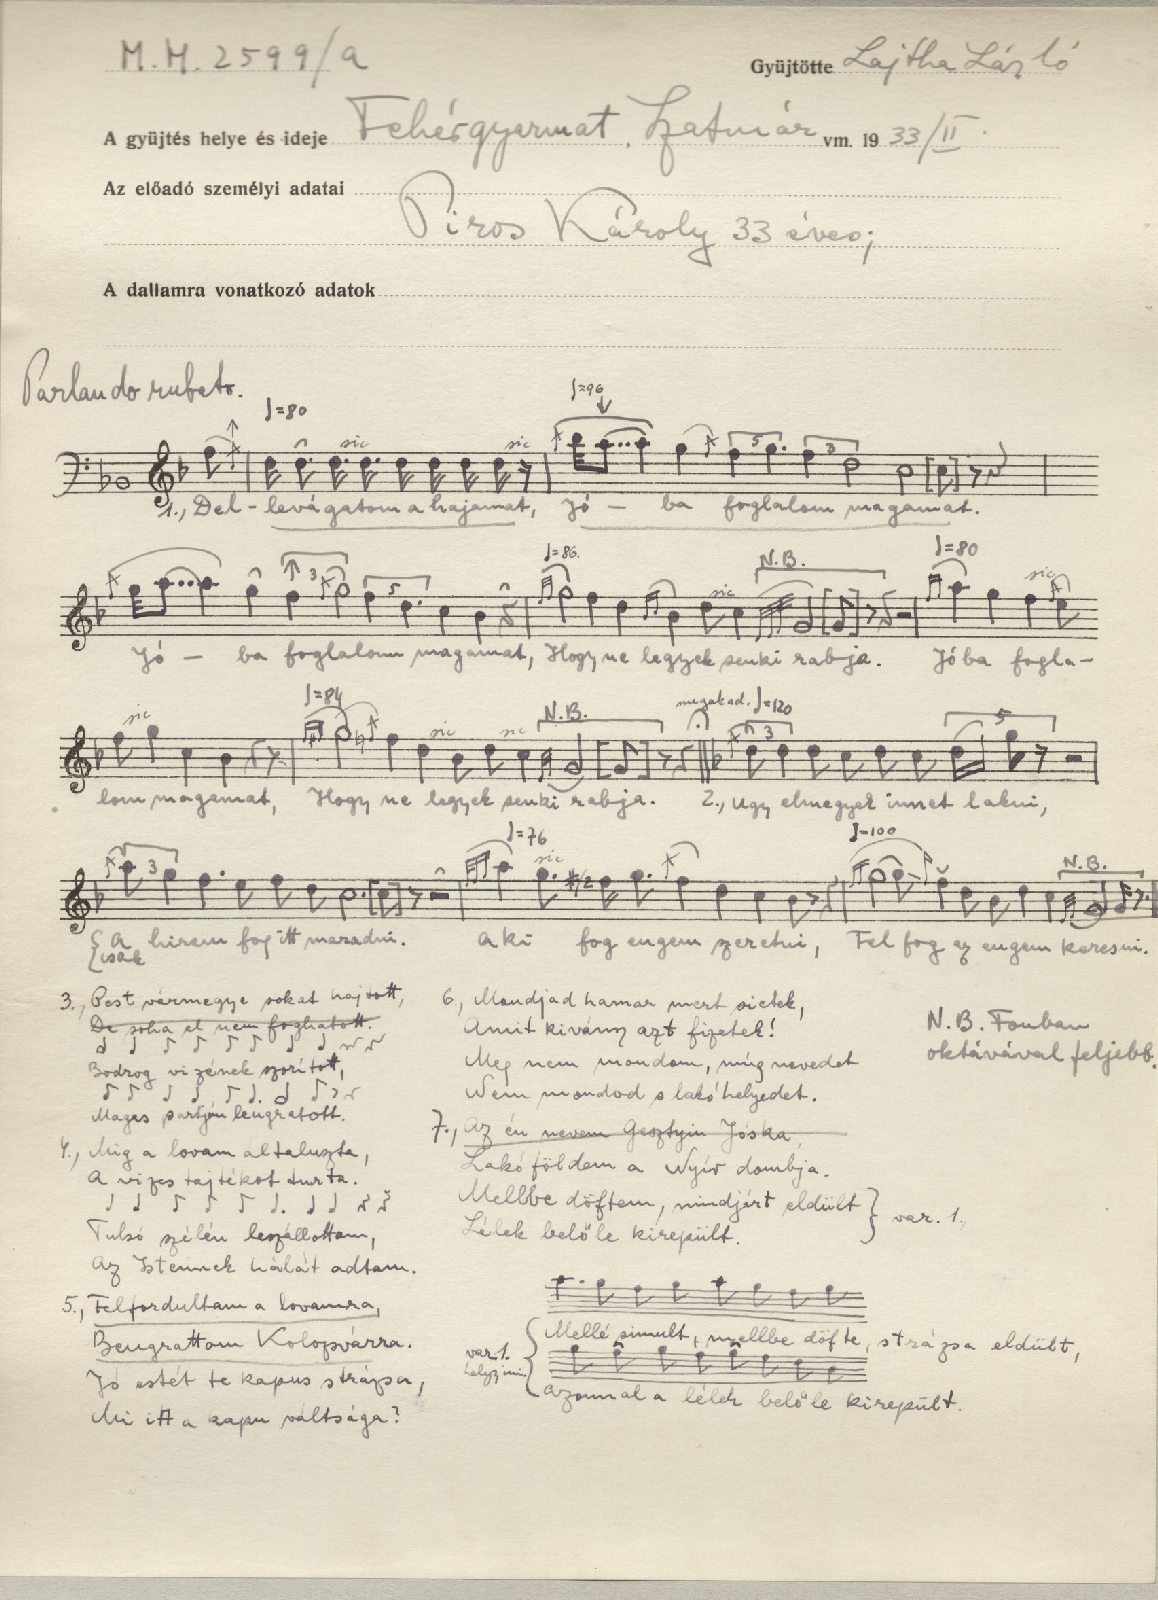 M.H. 2599/a
Gyüjtötte Lajtha László
A gyüjtés helye és ideje Fehérgyarmat, Szatmár vm. 1933/II.
Az előadó személyi adatai
Piros Károly 33 éves;
A dallamra vonatkozó adatok
Parlando rubato.
♩=80
♩=96
sic sic
5 3
1., Del-levágatom a hajamat, Jó – ba foglalom magamat.
♩=86. N.B. ♩=80
3 5 sic sic
Jó – ba foglalom magamat, Hogy ne legyek senki rabja. Jóba fogla-
sic ♩=84 sic sic N.B. megakad. ♩=120
3 5
lom magamat, Hogy ne legyek senki rabja. 2., Ugy elmegyek innet lakni,
♩=76 ♩=100
3 sic N.B.
A hirem fog itt maradni. Aki fog engem szeretni, Fel fog ez engem keresni.
csak
3., Pest vármegye sokat hajtott,
De soha el nem foghatott.
Bodrog vizének szorított,
Magas partján leugratott.
4., Mig a lovam altaluszta,
A vizes tajtékot turta.
Tulsó szélén leszállottam,
Az Istennek hálát adtam.
5., Felfordultam a lovamra,
Beugrattam Kolozsvárra.
Jó estét te kapus strázsa,
Mi itt a kapu váltsága?
6., Mondjad hamar mert sietek,
Amit kivánsz azt fizetek!
Meg nem mondom, míg nevedet
Nem mondod s lakóhelyedet.
7., Az én nevem Gesztyin Jóska,
Lakóföldem a Nyír dombja.
Mellbe döftem, mindjárt eldült
Lélek belőle kirepült. } var. 1.
N.B. Fonban
oktávával feljebb.
var. 1.
Mellé simult, mellbe döfte, strázsa eldült,
azonnal a lélek belőle kirepült.